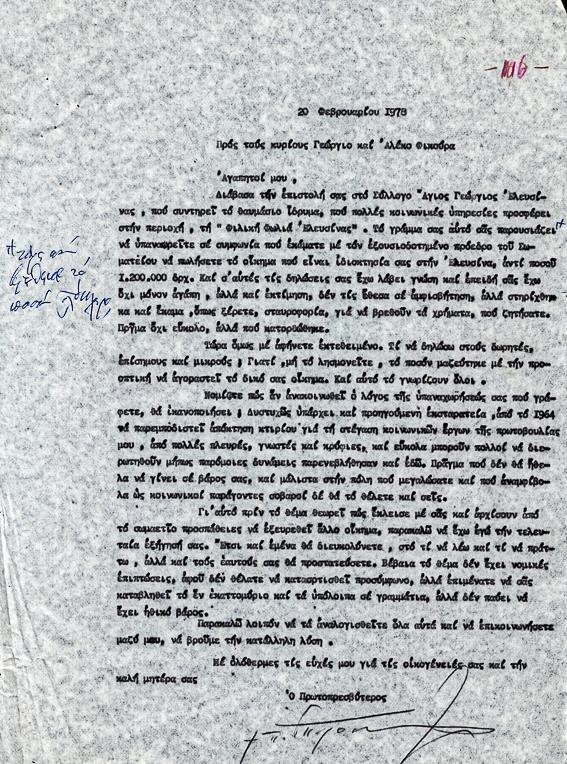 -116-
20 Φεβρουαρίου 1978
Πρός τούς κυρίους Γεώργιο καί Ἀλέκο Φικούρα
Ἀγαπητοί μου,
Διάβασα τήν ἐπιστολή σας στό Σύλλογο "Ἅγιος Γεώργιος Ἐλευσί-
νας, πού συντηρεῖ τό θαυμάσιο ἵδρυμα, πού πολλές κοινωνικές ὑπηρεσίες προσφέρει
στήν περιοχή, τή "Φιλική Φωλιά Ἐλευσίνας". Τό γράμμα σας αὐτό σᾶς παρουσιάζει
νά ὑπαναχωρεῖτε σέ συμφωνία πού ἐκάματε μέ τόν ἐξουσιοδοτημένο πρόεδρο τοῦ Σω-
ματείου νά πωλήσετε τό οἴκημα πού εἶναι ἰδιοκτησία σας στήν Ἐλευσίνα, ἀντί ποσοῦ
1.200.000 δρχ. Καί σ'αὐτές τίς δηλώσεις σας ἔχω λάβει γνώση καί ἐπειδή σᾶς ἔχω
ὄχι μόνον ἀγάπη, ἀλλά καί ἐκτίμηση, δέν τίς ἔθεσα σέ ἀμφισβήτηση, ἀλλά στηρίχθη-
κα καί ἔκαμα, ὅπως ξέρετε, σταυροφορία, γιά νά βρεθοῦν τά χρήματα, πού ζητήσατε.
Πρᾶγμα ὄχι εὔκολο, ἀλλά πού κατορθώθηκε.
Τώρα ὅμως μέ ἀφήνετε ἐκτεθειμένο. Τί νά δηλώσω στούς δωρητές,
ἐπίσημους καί μικρούς; Γιατί, μή τό λησμονεῖτε, τό ποσόν μαζεύτηκε μέ τήν προ-
οπτική νά ἀγοραστεῖ τό δικό σας οἴκημα. Καί αὐτό τό γνωρίζουν ὅλοι.
Νομίζετε πώς ἄν ἀνακοινωθεῖ ὁ λόγος τῆς ὑπαναχωρήσεώς σας πού γρά-
φετε, θά ἱκανοποιήσει; Δυστυχῶς ὑπάρχει καί προηγούμενη ἐκστρατεία, ἀπό τό 1964
νά παρεμποδιστεῖ ἀπόκτηση κτιρίου γιά τή στέγαση κοινωνικῶν ἔργων τῆς πρωτοβουλίας
μου, ἀπό πολλές πλευρές, γνωστές καί κρύφιες, καί εὔκολα μποροῦν πολλοί νά διε-
ρωτηθοῦν μήπως παρόμοιες δυνάμεις παρενεβλήθησαν καί ἐδῶ. Πρᾶγμα πού δέν θά ἤθε-
λα νά γίνει σέ βάρος σας, καί μάλιστα στήν πόλη πού μεγαλώσατε καί πού ἀναμφίβο-
λα ὡς κοινωνικοί παράγοντες σοβαροί δέ θά τό θέλετε καί σεῖς.
Γι'αὐτό πρίν τό θέμα θεωρεῖ πώς ἔκλεισε μέ σᾶς καί ἀρχίσουν ἀπό
τό σωματεῖο προσπάθειες νά ἐξευρεθεῖ ἄλλο οἴκημα, παρακαλῶ νά ἔχω ἐγώ τήν τελευ-
ταία ἐξήγησή σας. Ἔτσι καί ἐμένα θά διευκολύνετε, στό τί νά λέω καί τί νά πράτ-
τω, ἀλλά καί τούς ἑαυτούς σας θά προστατεύσετε. Βέβαια τό θέμα δέν ἔχει νομικές
ἐπιπτώσεις, ἀφοῦ δέν θέλατε νά καταρτισθεῖ προσύμφωνο, ἀλλά ἐπιμένατε νά σᾶς
καταβληθεῖ τό ἕν ἑκατομμύριο καί τά ὑπόλοιπα σέ γραμμάτια, ἀλλά δέν παύει νά
ἔχει ἠθικό βάρος.
Παρακαλῶ λοιπόν νά τά ἀναλογισθεῖτε ὅλα αὐτά καί νά ἐπικοινωνήσετε
μαζύ μου, νά βροῦμε τήν κατάλληλη λύση.
Μέ ὁλόθερμες τίς εὐχές μου γιά τίς οἰκογένειές σας καί τήν
καλή μητέρα σας
Ὁ Πρωτοπρεσβύτερος